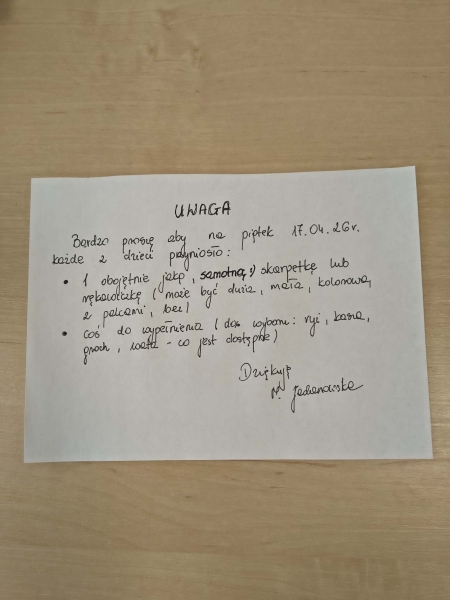 UWAGA
Bardzo proszę aby na piątek 17.04.26r.
każde z dzieci przyniosło:
• 1 obojętnie jaką, samotną :) skarpetkę lub
rękawiczkę (może być duża, mała, kolorowa,
z palcami, bez)
• coś do wypełnienia (do wyboru: ryż, kasza,
groch, wata - co jest dostępne)
Dziękuję